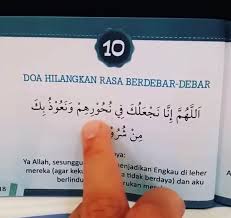 10
DOA HILANGKAN RASA BERDEBAR-DEBAR
اَللّٰهُمَّ إِنَّا نَجْعَلُكَ فِي نُحُوْرِهِمْ وَنَعُوْذُ بِكَ
مِنْ
Ya Allah, sesungguh menjadikan Engkau di leher
mereka (agar keku tidak berdaya) dan aku
berlindu rukan
18